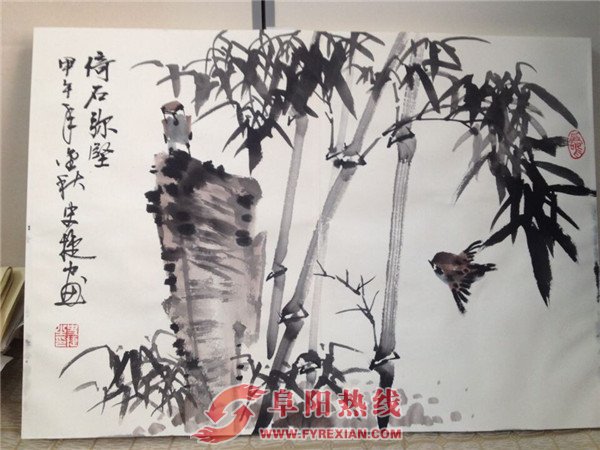 倚石弥坚
甲午年深秋史捷画
阜阳热线
WWW.FYREXIAN.COM